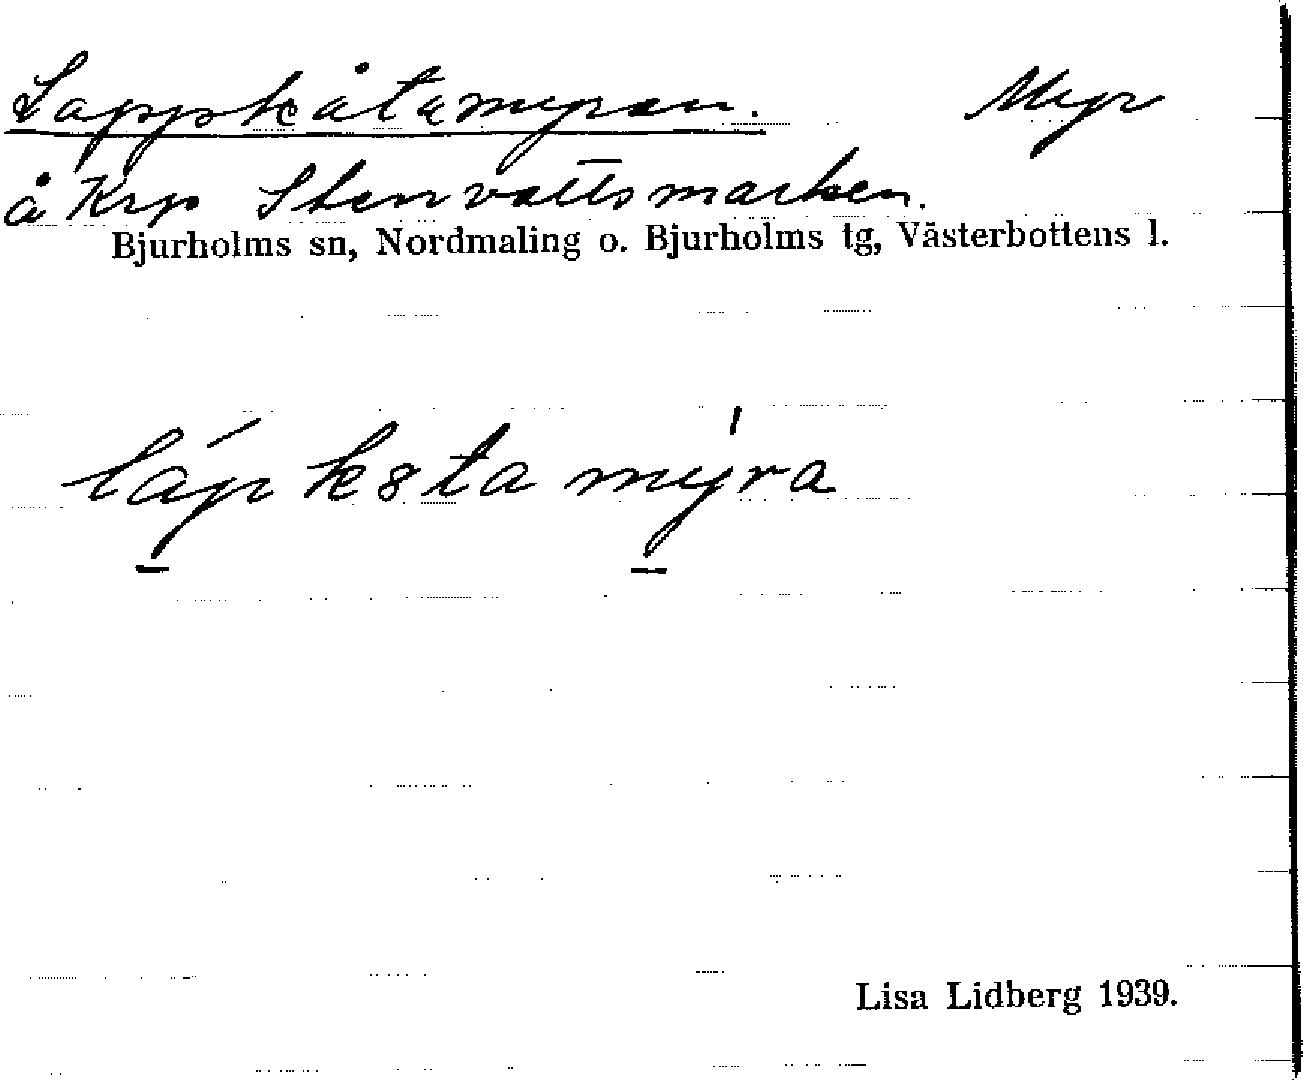 Lappkåtamyran. Myr
å Krp Stenvattsmarken.
Bjurholms sn, Nordmaling o. Bjurholms tg, Västerbottens l.
láp k8ta mýra
Lisa Lidberg 1939.